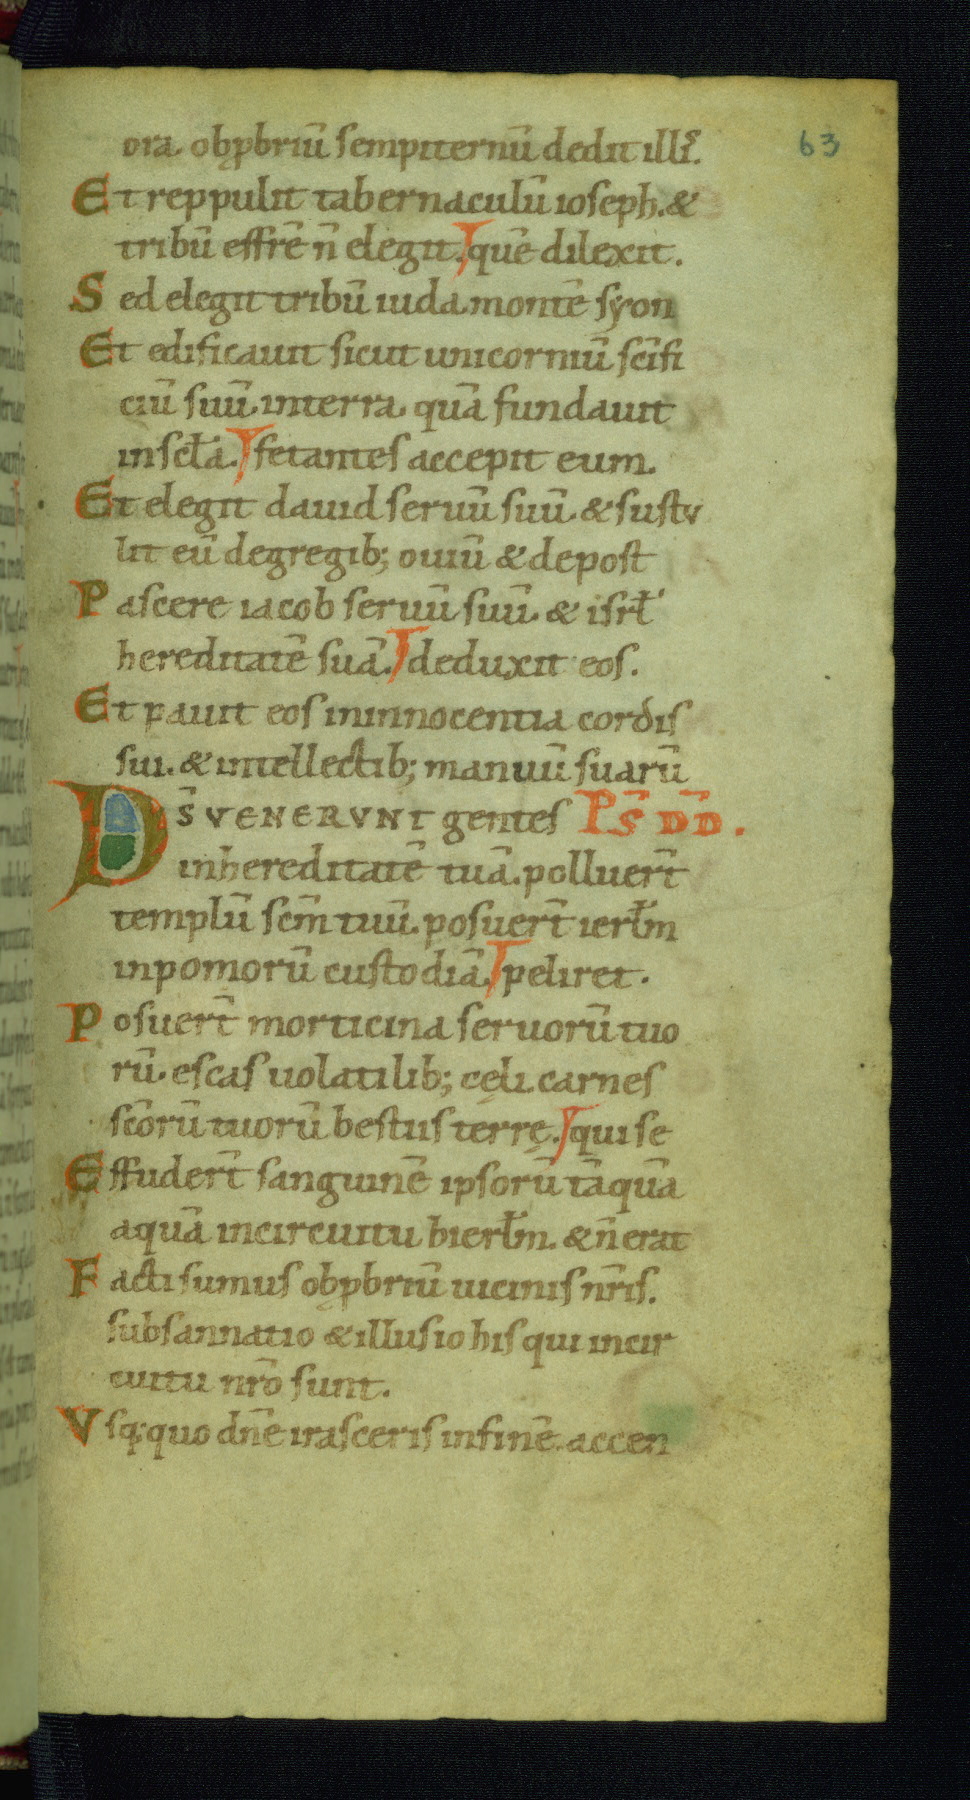 63
ora. obp̱briū sempiternū dedit illis̄.
Et reppulit tabernaculū ioseph. &
tribū effrē n̄ elegit. quē dilexit.
Sed elegit tribū iuda. montē syon
Et edificauit sicut unicorniū scīfi
ciū suū. interra. quā fundauit
inscl̄a. fetantes accepit eum.
Et elegit dauid seruū suū. & sustu
lit eū degregib; ouiū & depost
Pascere iacob seruū suū. & isrl̄
hereditatē suā. deduxit eos.
Et pauit eos ininnocentia cordis
sui. & intellectib; manuū suarū
Ds̄ VENERVNT gentes Ps̄ DD̄.
inhereditatē tuā. polluer̄t
templū scm̄ tuū. posuer̄t ierl̄m
inpomorū custodiā. peliret.
Posuer̄t morticina seruorū tuo
rū. escas uolatilib; cęli. carnes
scōrū tuorū bestiis terrę. qui se
Effuder̄t sanguinē ipsorū tāquā
aquā incircuitu hierl̄m. & n̄ erat
Facti sumus obp̱briū uicinis nr̄is.
subsannatio & illusio his qui incir
cuitu nr̄o sunt.
Vsq; quo dn̄e irasceris infinē. accen